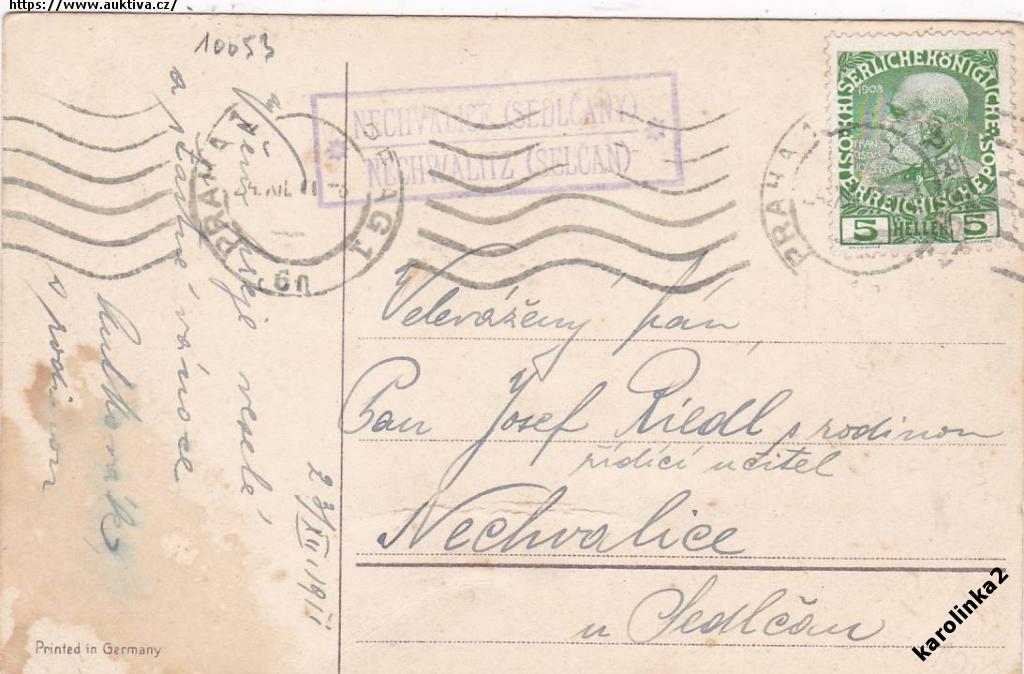 https://www.auktiva.cz/
10053
přeje veselé
a šťastné vánoce
s rodinou
23/XII. 1911
NECHVALICE (SEDLČANY)
NECHWALITZ (SELČAN)
PRAHA 1
PRAG 1
24. XII. 11
KAISERLICHE KÖNIGLICHE ÖSTERREICHISCHE POST
1908
5 HELLER 5
PRAHA 1
Velevážený pán
Pan Josef Riedl s rodinou
řídící učitel
Nechvalice
u Sedlčan
Printed in Germany
karolinka2